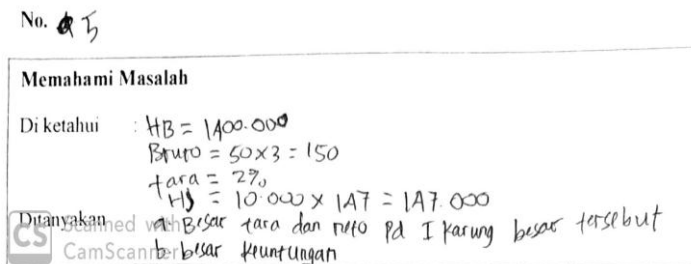 No. 5
Memahami Masalah
Di ketahui : HB = 1400.000
Bruto = 50 x 3 = 150
tara = 2%
HJ = 10.000 x 147 = 147.000
Ditanyakan a. Besar tara dan neto Pd I karung besar tersebut
b. besar keuntungan
CS Scanned with CamScanner